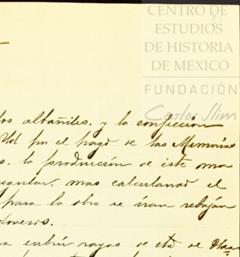 CENTRO DE
ESTUDIOS
DE HISTORIA
DE MEXICO
FUNDACIÓN
Carlos Slim
los albañiles, y la confección
Ud por el pago de las Memorias
s. la producción de este ma
mas calculando el
para la obra se irian rebajan
doveros.
a cubrir rayas de eto de